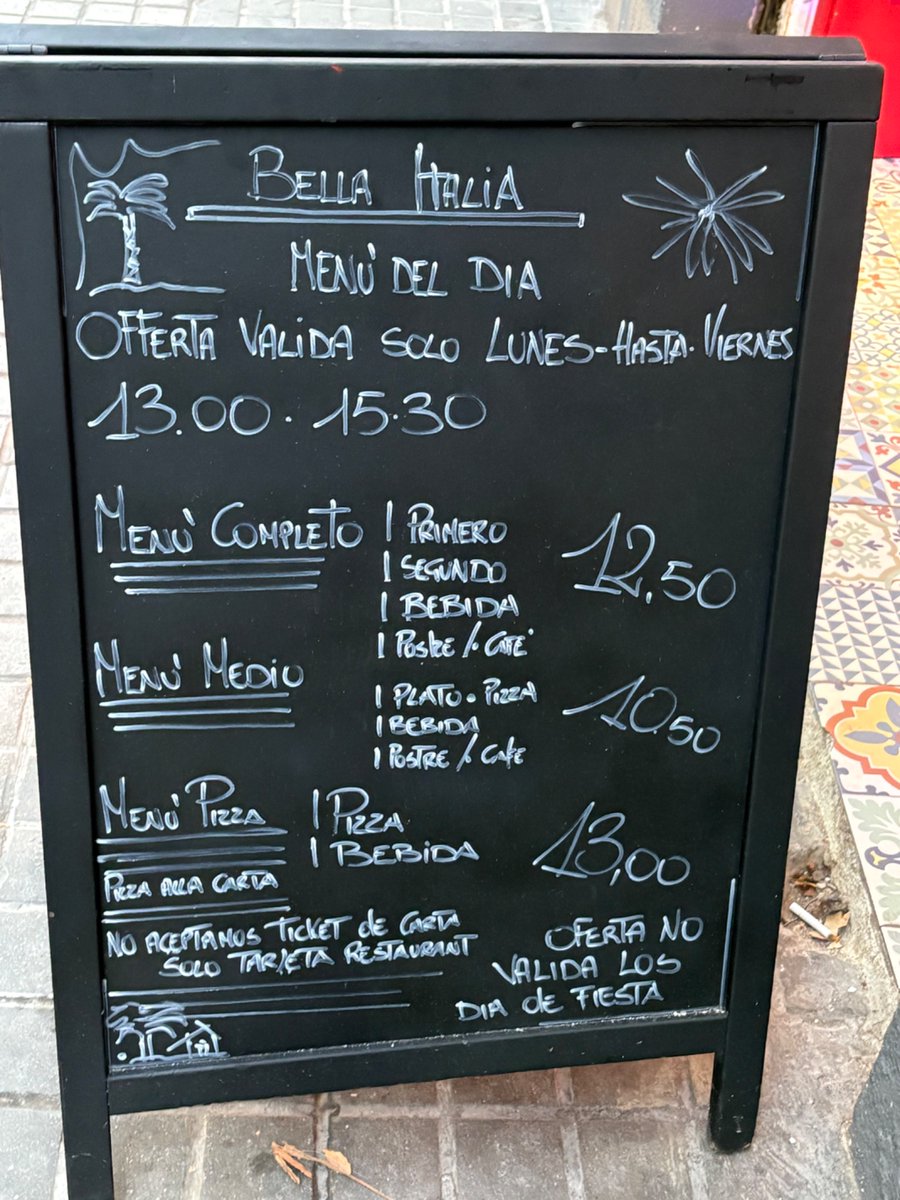 BELLA ITALIA
MENÙ DEL DIA
OFFERTA VALIDA SOLO LUNES-HASTA.VIERNES
13.00 . 15.30
MENÙ COMPLETO
1 PRIMERO
1 SEGUNDO
1 BEBIDA
1 POSTRE / CAFÉ
12,50
MENÙ MEDIO
1 PLATO . PIZZA
1 BEBIDA
1 POSTRE / CAFE
10.50
MENÙ PIZZA
PIZZA ALLA CARTA
1 PIZZA
1 BEBIDA
13,00
NO ACEPTAMOS TICKET de CARTA
SOLO TARJETA RESTAURANT
OFERTA NO
VALIDA LOS
DIA de FIESTA